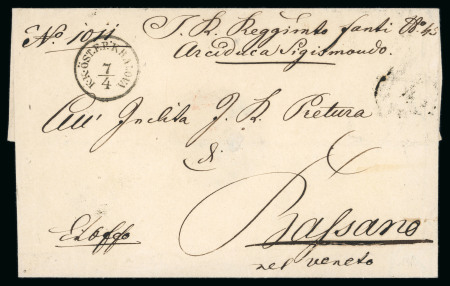 No. 1011
I. R. Reggimto fanti No. 45
Arciduca Sigismondo.
7/4
All' Inclita I. R. Pretura
di
Bassano
nel Veneto
Ex offo